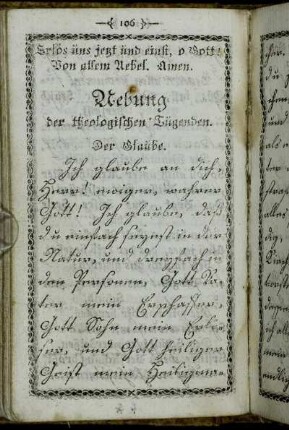 106
Erlös üns jetzt ünd einst, o Gott!
Von allem Uebel. Amen.
Uebung
der theologischen Tügenden.
Der Glaube.
Ich glaube an dich,
Herr! einiger, wahrer
Gott! Ich glaube, daß
du einfach seyest in der
Natur, und dreyfach in
den Personen, Gott Va-
ter mein Erschaffer,
Gott Sohn mein Erlö-
ser, und Gott heiliger
Geist mein Heiligma-